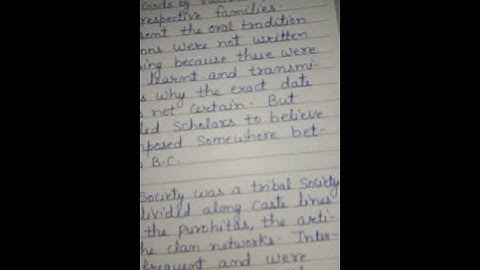 respective families.
sent the oral tradition
ons were not written
ing because these were
learnt and transmi-
s why the exact date
not certain. But
led Scholars to believe
posed Somewhere bet-
B.C.
Society was a tribal Society
divided along caste lines
the purohitas, the arti-
he clan networks. Inter-
frequent and were